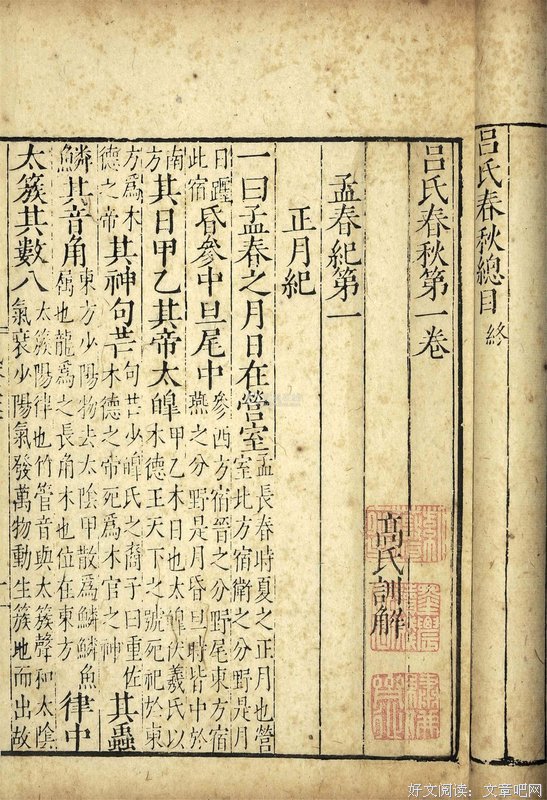 呂氏春秋總目 終
呂氏春秋第一卷
高氏訓解
孟春紀第一
正月紀
一曰孟春之月日在營室孟長春時夏之正月也營室北方宿衛之分野是月
日躔此宿昏參中旦尾中參西方宿晉之分野尾東方宿燕之分野是月昏旦時皆中於
南方其日甲乙其帝太皥甲乙木日也太皥伏羲氏以木德王天下之號死祀於東
方爲木德之帝其神句芒句芒少皥氏之裔子曰重佐木德之帝死爲木官之神其蟲
鱗其音角東方少陽物去太陰甲散爲鱗鱗魚屬也龍爲之長角木也位在東方律中
太簇其數八太簇陽律也竹管音與太簇聲和太陰氣衰少陽氣發萬物動生簇地而出故
好文阅读：文章吧网